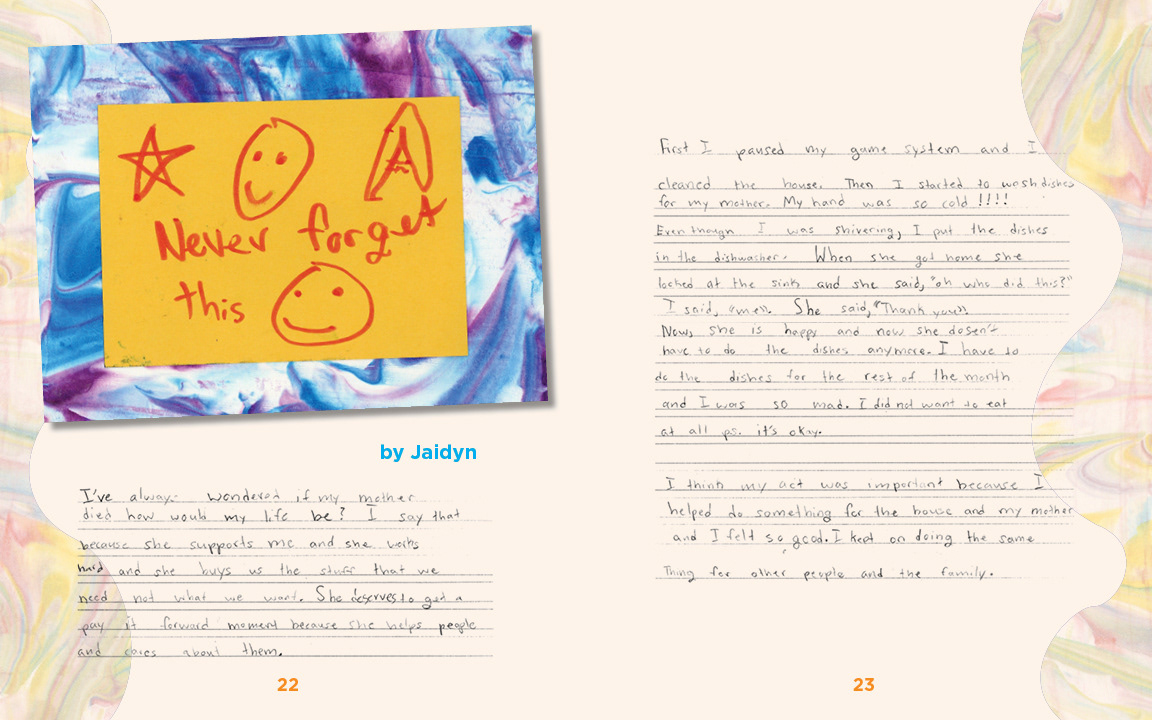 A
Never forget
this
by Jaidyn
I've always wondered if my mother
died how would my life be? I say that
because she supports me and she works
hard and she buys us the stuff that we
need not what we want. She deserves to get a
pay it forward moment because she helps people
and cares about them.
22
First I paused my game system and I
cleaned the house. Then I started to wash dishes
for my mother. My hand was so cold !!!!
Even though I was shivering, I put the dishes
in the dishwasher. When she got home she
looked at the sink and she said, "oh who did this?"
I said, "me". She said, "Thank you".
Now, she is happy and now she dosen't
have to do the dishes anymore. I have to
do the dishes for the rest of the month
and I was so mad. I did not want to eat
at all ps. it's okay.
I think my act was important because I
helped do something for the house and my mother
and I felt so good. I kept on doing the same
Thing for other people and the family.
23